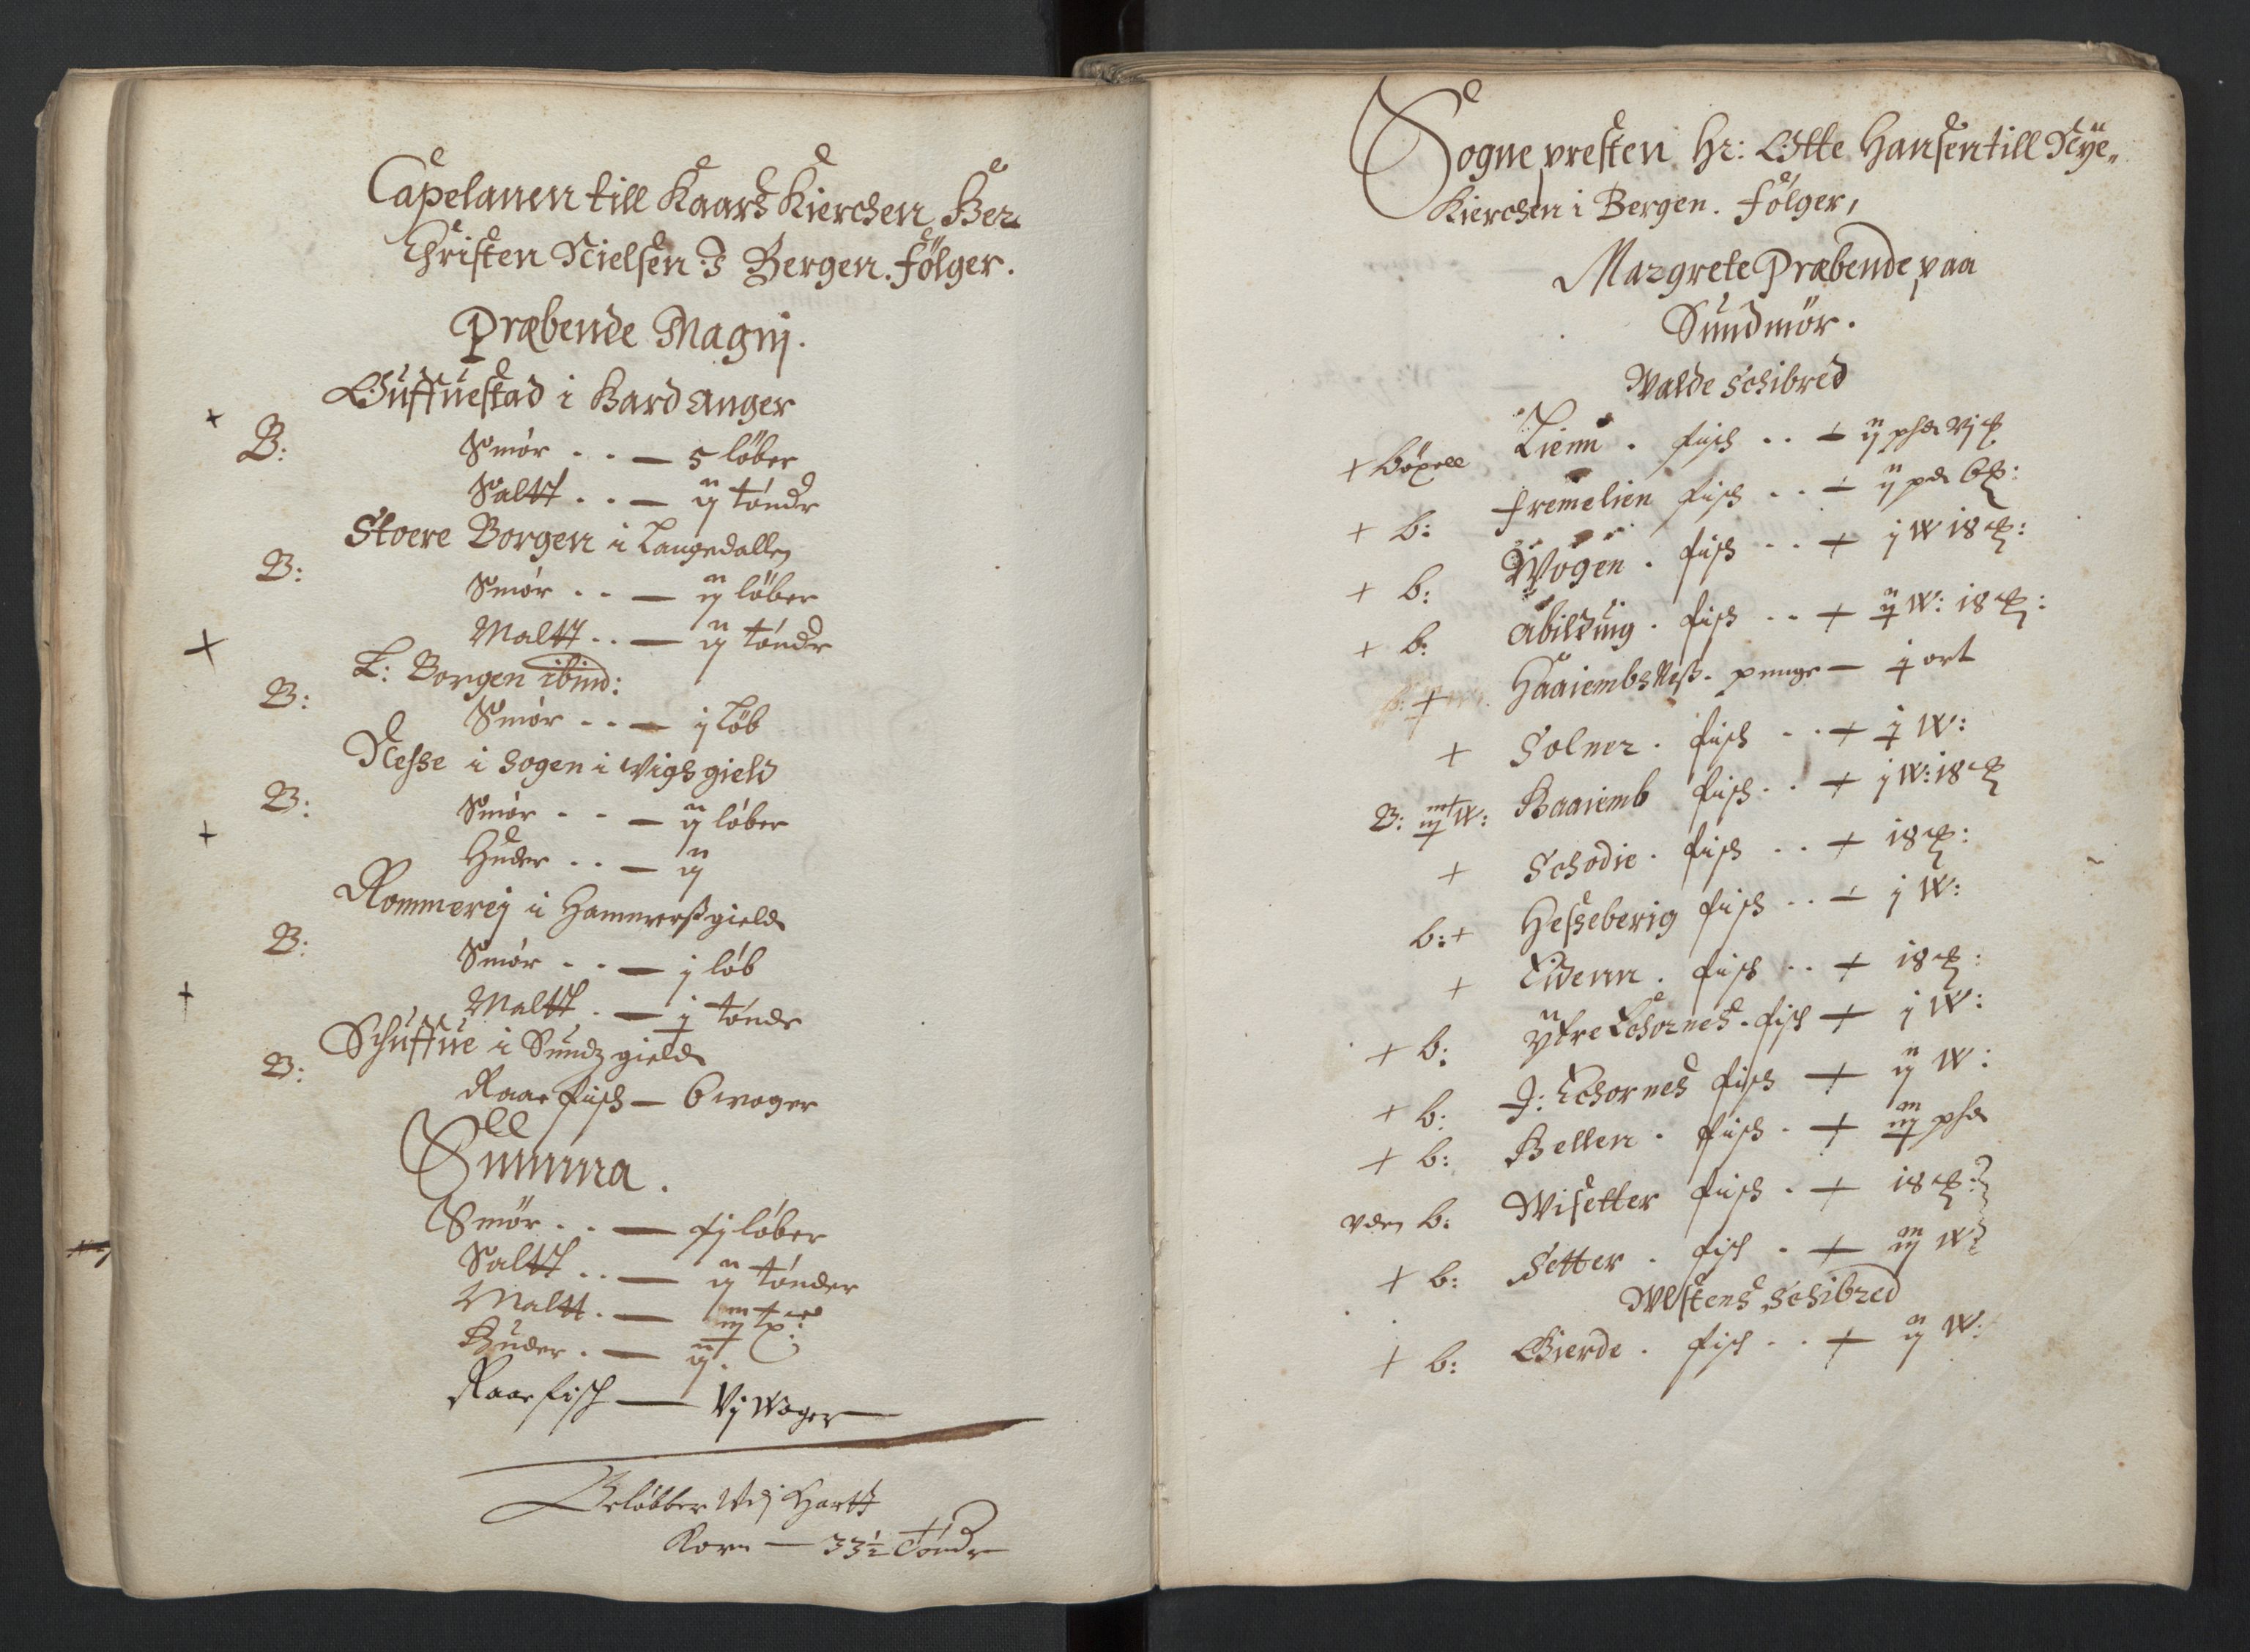 Capelanen till Kaars Kierchen Her
Christen Nielsen J Bergen. følger.
Præbende Magnj.
Guffuestad i Hardanger
B: Smör . . — 5 löber
Saltt . . — ij tönder
Stoere Borgen i Langedallen
B: Smör . . — ij löber
Maltt . . — ij tönder
L: Borgen ibid:
B: Smör . . — j löb
Nesse i Sogen i Vigs gield
B: Smör . . — ij löber
Huder . . — ij
Rommerej i Hammersgield
B: Smör . . — j löb
Maltt . — j tönde
Schuffue i Sundz gield
B: Raae fisch — 6 woger
Summa.
Smör . . — xj löber
Saltt . . — ij tönder
Maltt . — iij tr:
Huder . — ij.
Raae fisch — Vj Woger
Beløbber Vdj Hartt
Korn — 33½ Tönder
Sogne presten Hr: Otte Hansen till Nye
Kierchen i Bergen. følger,
Margrete Præbende paa
Sundmör.
Walde Schibred
+ böxell Lienn . fisch . . — ij pd Vj
+ b: Fremelien fisch . . — ij pd 6
+ b: Wogen . fisch . . + j W 18
+ b: Abildung . fisch . . + ij W: 18
Haaiembsnes . penge — j ort
+ Solner . fisch . . + j W:
B: iij W: Haaiemb fisch . . + j W: 18
+ Schodie . fisch . . + 18
b: + Hesseberig fisch . . — j W:
+ Eidenn . fisch . . + 18
+ b: Yttre Echornes . fisch + j W:
+ b: J: Echornes fisch + ij W:
+ b: Hellen . fisch . + iij pd
vden b: Wisetter fisch . + 18
+ b: Setter . fisch . + iij W
Wlstens Schibred
+ b: Gierde . fisch . . + ij W: